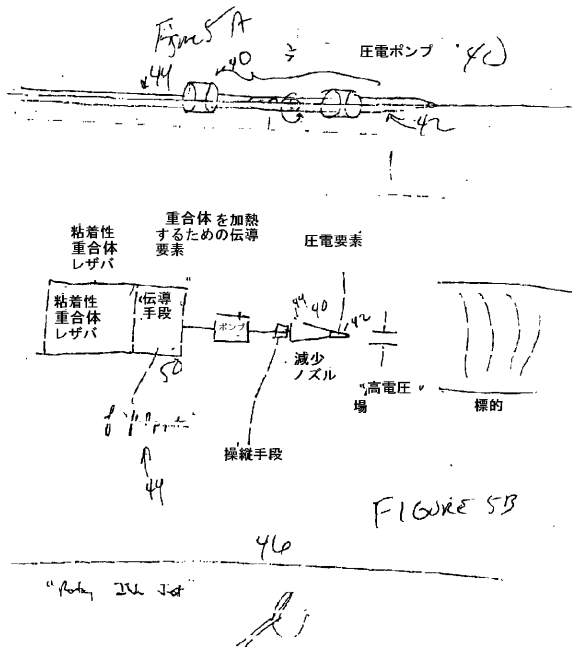 Figure 5 A
圧電ポンプ 40
44
40
42
粘着性
重合体
レザバ
重合体を加熱
するための伝導
要素
圧電要素
粘着性
重合体
レザバ
伝導
手段
ポンプ
44
40
42
減少
ノズル
50
"高電圧"
場
標的
操縦手段
44
FIGURE 5B
46
Ink Jet"